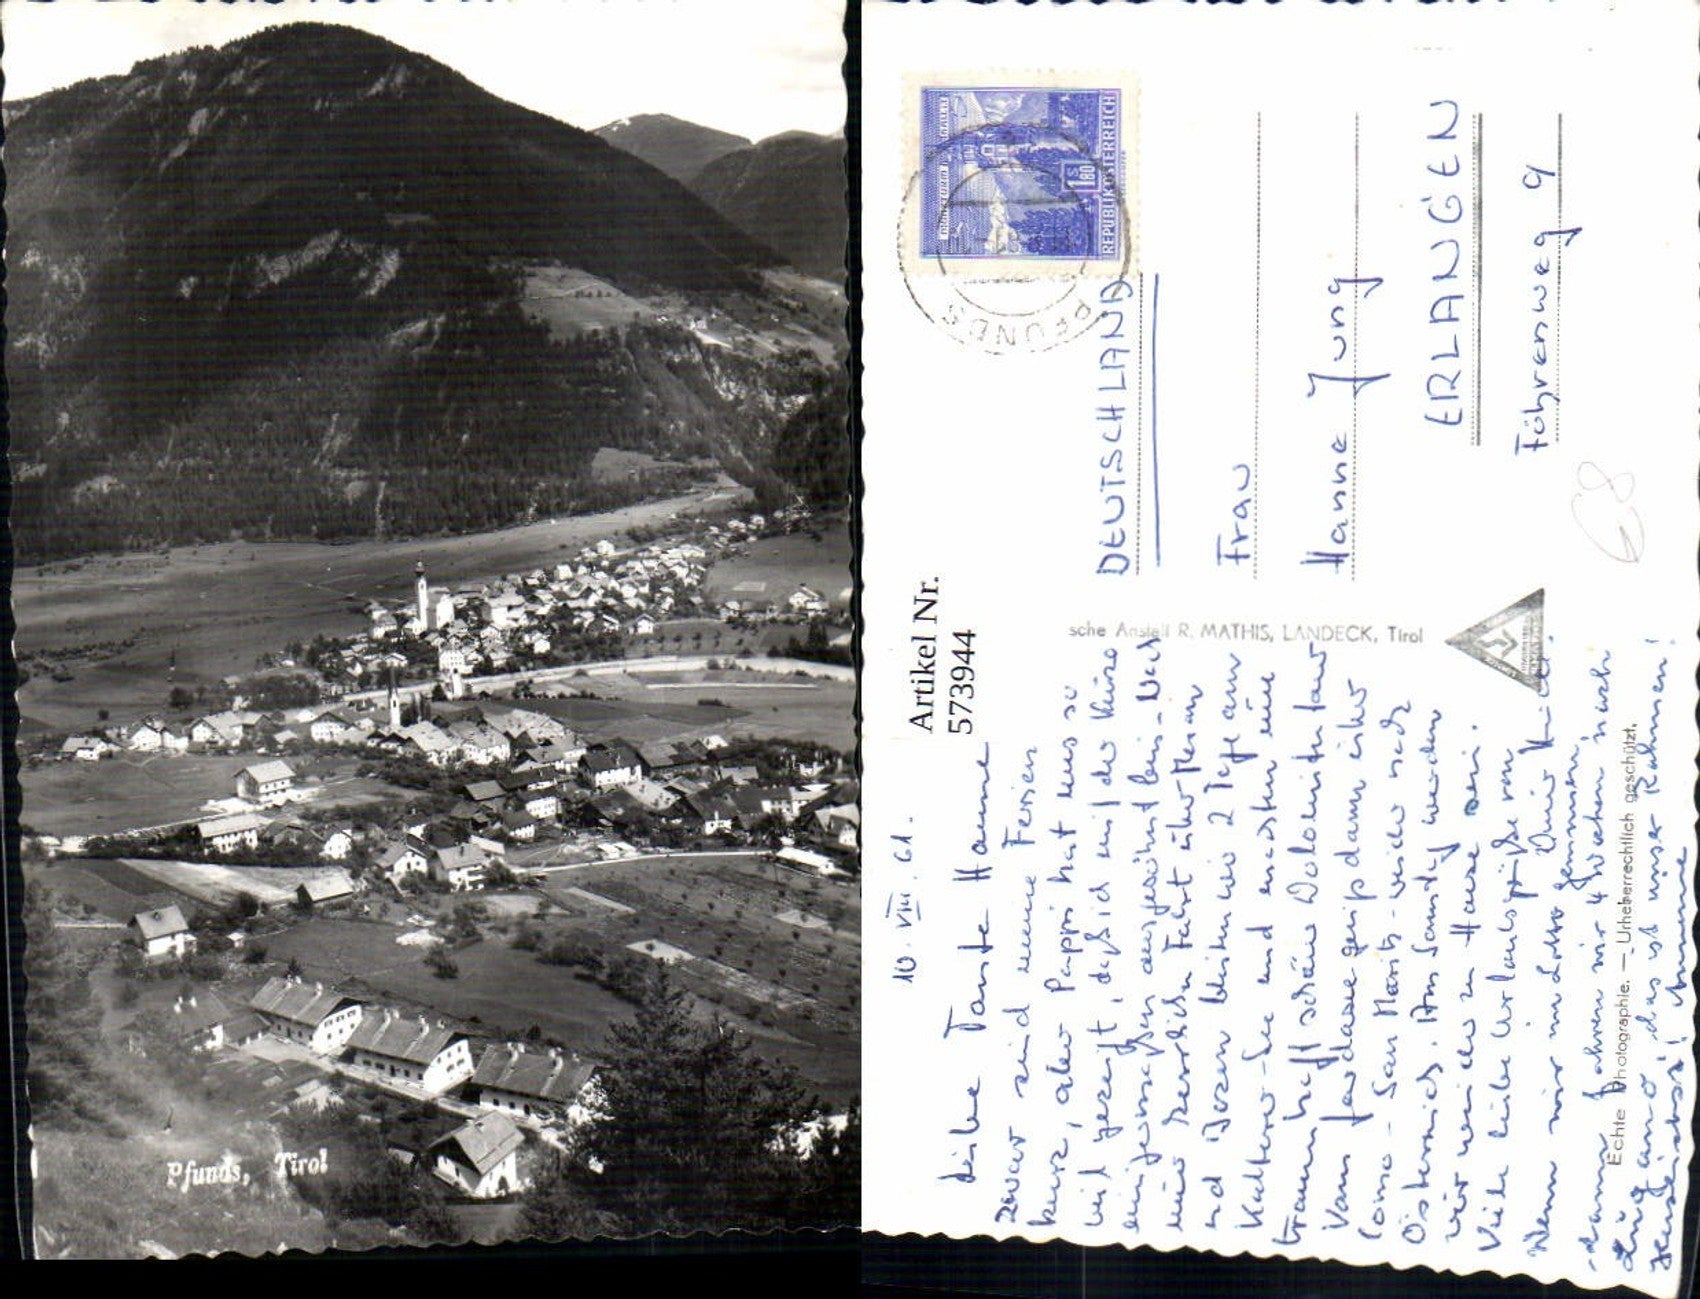 Pfunds, Tirol
Artikel Nr.
573944
REPUBLIK ÖSTERREICH
S
1.80
PFUNDS
DEUTSCHLAND
Frau
Hanne Jung
ERLANGEN
Föhrenweg 9
sche Anstalt R. MATHIS, LANDECK, Tirol
Echte Photographie. — Urheberrechtlich geschützt.
10. VIII. 61.
Liebe Tante Hanne
zwar sind meine Ferien
kurz, aber Pappi hat uns so
viel gezeigt, daß ich mit der Kürze
einigermaßen ausgesöhnt bin. Nach
einer herrlichen Fahrt über Meran
und Bozen blieben wir 2 Tage am
Kalterer-See und machten eine
traumhaft schöne Dolomitentour
Vom Gardasee ging's dann über
Como - San Moritz wieder nach
Österreich. Am Samstag werden
wir wieder zu Hause sein.
Viele liebe Urlaubsgrüße von
Wenn wir im Lotto gewinnen,
dann fahren wir 4 Wochen nach
Lugano, das ist unser Rahmen!